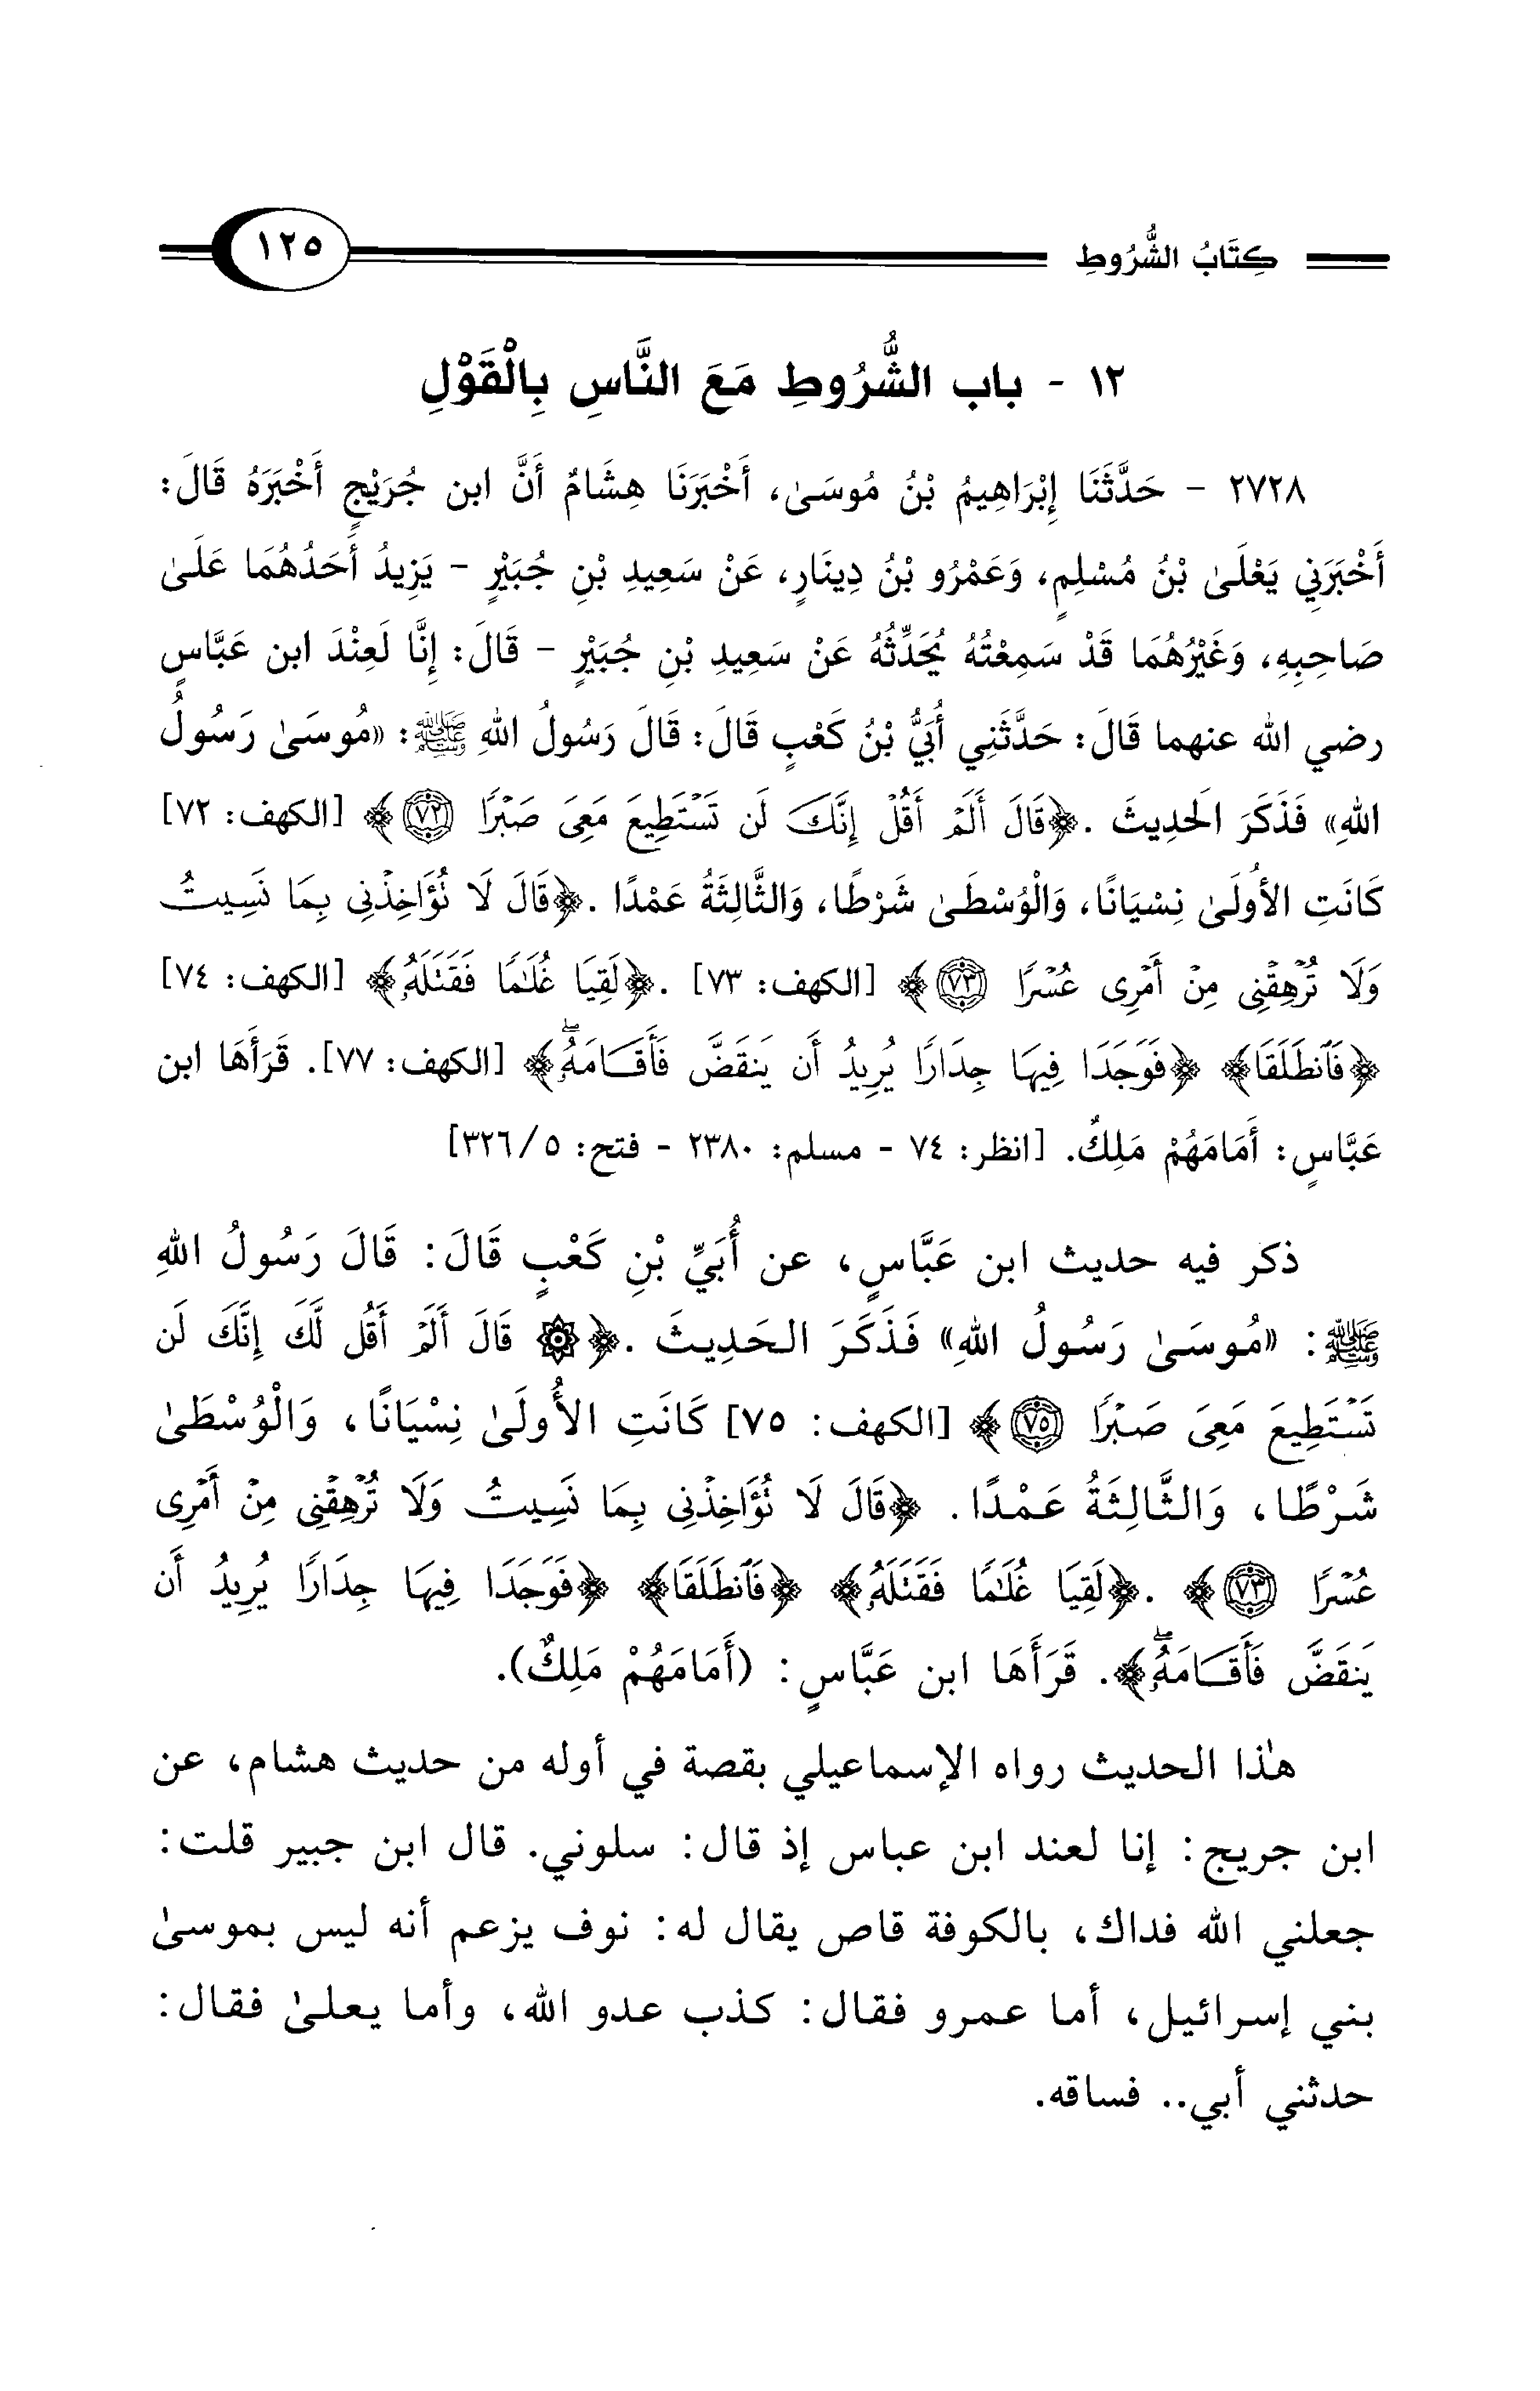 كِتَابُ الشُّرُوطِ
١٢٥
١٢ - باب الشُّرُوطِ مَعَ النَّاسِ بِالْقَوْلِ
٢٧٢٨ - حَدَّثَنَا إِبْرَاهِيمُ بْنُ مُوسَىٰ، أَخْبَرَنَا هِشَامٌ أَنَّ ابن جُرَيْجٍ أَخْبَرَهُ قَالَ:
أَخْبَرَنِي يَعْلَىٰ بْنُ مُسْلِمٍ، وَعَمْرُو بْنُ دِينَارٍ، عَنْ سَعِيدِ بْنِ جُبَيْرٍ - يَزِيدُ أَحَدُهُمَا عَلَىٰ
صَاحِبِهِ، وَغَيْرُهُمَا قَدْ سَمِعْتُهُ يُحَدِّثُهُ عَنْ سَعِيدِ بْنِ جُبَيْرٍ - قَالَ: إِنَّا لَعِنْدَ ابن عَبَّاسٍ
رضي الله عنهما قَالَ: حَدَّثَنِي أُبَيُّ بْنُ كَعْبٍ قَالَ: قَالَ رَسُولُ اللهِ ﷺ: «مُوسَىٰ رَسُولُ
اللهِ» فَذَكَرَ الَحدِيثَ .﴿قَالَ أَلَمۡ أَقُلۡ إِنَّكَ لَن تَسۡتَطِيعَ مَعِيَ صَبۡرٗا ٧٢﴾ [الكهف: ٧٢]
كَانَتِ الأُولَىٰ نِسْيَانًا، وَالْوُسْطَىٰ شَرْطًا، وَالثَّالِثَةُ عَمْدًا .﴿قَالَ لَا تُؤَاخِذۡنِي بِمَا نَسِيتُ
وَلَا تُرۡهِقۡنِي مِنۡ أَمۡرِي عُسۡرٗا ٧٣﴾ [الكهف: ٧٣] .﴿لَقِيَا غُلَٰمٗا فَقَتَلَهُۥ﴾ [الكهف: ٧٤]
﴿فَٱنطَلَقَا﴾ ﴿فَوَجَدَا فِيهَا جِدَارٗا يُرِيدُ أَن يَنقَضَّ فَأَقَامَهُۥۖ﴾ [الكهف: ٧٧]. قَرَأَهَا ابن
عَبَّاسٍ: أَمَامَهُمْ مَلِكٌ. [انظر: ٧٤ - مسلم: ٢٣٨٠ - فتح: ٥/ ٣٢٦]
ذكر فيه حديث ابن عَبَّاسٍ، عن أُبَيِّ بْنِ كَعْبٍ قَالَ: قَالَ رَسُولُ اللهِ
ﷺ: «مُوسَىٰ رَسُولُ اللهِ» فَذَكَرَ الحَدِيثَ .﴿۞ قَالَ أَلَمۡ أَقُل لَّكَ إِنَّكَ لَن
تَسۡتَطِيعَ مَعِيَ صَبۡرٗا ٧٥﴾ [الكهف: ٧٥] كَانَتِ الأُولَىٰ نِسْيَانًا، وَالْوُسْطَىٰ
شَرْطًا، وَالثَّالِثَةُ عَمْدًا. ﴿قَالَ لَا تُؤَاخِذۡنِي بِمَا نَسِيتُ وَلَا تُرۡهِقۡنِي مِنۡ أَمۡرِي
عُسۡرٗا ٧٣﴾ .﴿لَقِيَا غُلَٰمٗا فَقَتَلَهُۥ﴾ ﴿فَٱنطَلَقَا﴾ ﴿فَوَجَدَا فِيهَا جِدَارٗا يُرِيدُ أَن
يَنقَضَّ فَأَقَامَهُۥۖ﴾. قَرَأَهَا ابن عَبَّاسٍ: (أَمَامَهُمْ مَلِكٌ).
هٰذا الحديث رواه الإسماعيلي بقصة في أوله من حديث هشام، عن
ابن جريج: إنا لعند ابن عباس إذ قال: سلوني. قال ابن جبير قلت:
جعلني الله فداك، بالكوفة قاص يقال له: نوف يزعم أنه ليس بموسىٰ
بني إسرائيل، أما عمرو فقال: كذب عدو الله، وأما يعلىٰ فقال:
حدثني أبي.. فساقه.